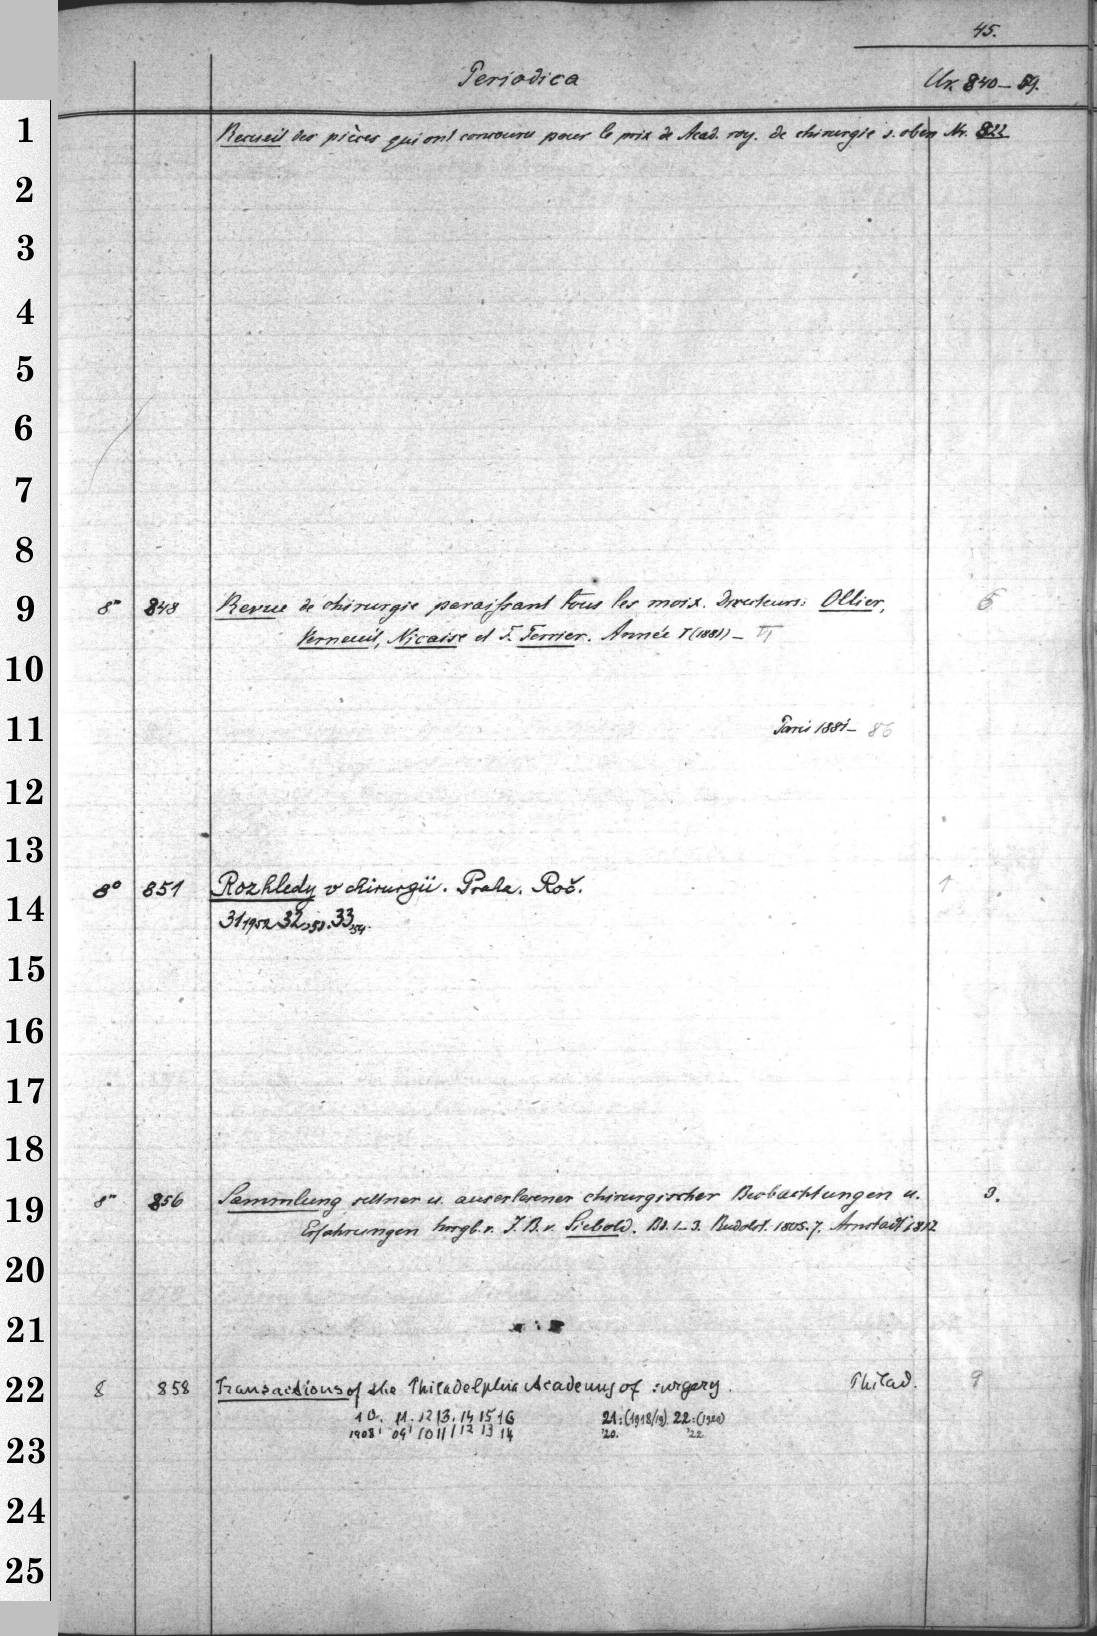 45.
Periodica
Nr. 840–59.
Recueil des pièces qui ont concouru pour le prix de Acad. roy. de chirurgie s. oben Nr. 822
8° 848 Revue de chirurgie paraissant tous les mois. Directeurs: Ollier, 6
Verneuil, Nicaise et F. Terrier. Année I (1881) – VI
Paris 1881– 86
8° 851 Rozhledy v chirurgii. Praha. Roč. 1
31 1952 32 53. 33 54.
8° 856 Sammlung seltner u. auserlesener chirurgischer Beobachtungen u. 3.
Erfahrungen hrsgb. v. J. B. v. Siebold. Bd. 1–3. Rudolst. 1805. 7. Arnstadt 1812
8 858 Transactions of the Philadelphia Academy of surgery. Philad. 9
10. 11. 12 13. 14 15 16 21: (1918/19) 22: (1920)
1908 09 10 11 12 13 14 '20. '22
1
2
3
4
5
6
7
8
9
10
11
12
13
14
15
16
17
18
19
20
21
22
23
24
25